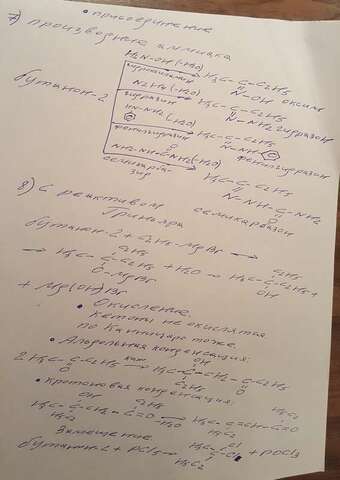 • присоединение
7) производные аммиака
H₂N-OH (-H₂O)
гидроксиламин H₃C-C-C₂H₅
N-OH оксим
N₂H₄ (-H₂O)
гидразин H₃C-C-C₂H₅
бутанон-2
N-NH₂ гидразон
HN-NH₂ (-H₂O)
фенилгидразин H₃C-C-C₂H₅
N-NH
фенилгидразон
O
NH₂-NH-C-NH₂ (-H₂O)
семикарба-
зид
H₃C-C-C₂H₅
N-NH-C-NH₂
O
семикарбазон
8) С реактивом
Гриньяра
бутанон-2 + C₂H₅-MgBr →
C₂H₅ C₂H₅
→ H₃C-C-C₂H₅ + H₂O → H₃C-C-C₂H₅ +
O-MgBr OH
+ Mg(OH)Br
• Окисление.
кетоны не окислятся
по Канницаро тоже.
• Альдольная конденсация:
OH
2 H₃C-C-C₂H₅ → H₃C-C-CH₂-C-C₂H₅
O C₂H₅ O
• кротоновая конденсация:
OH C₂H₅ H₅C₂
-H₂O
H₅C₂ H₅C₂
Замещение
бутанон-2 + PCl₅ → + POCl₃
H₅C₂